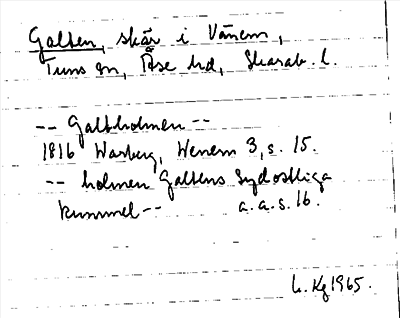 Galten, skär i Vänern,
Tuns sn, Åse hd, Skarab. l.
-- Galtholmen --
1816 Warberg, Wenern 3, s. 15.
-- holmen Galtens Sydostliga
Kummel -- a.a.s. 16.
L. Kg 1965.